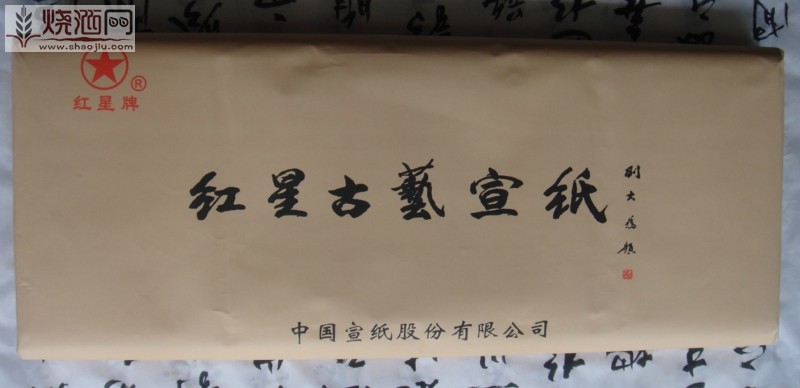 烧酒网
www.shaojiu.com
®
红星牌
红星古藝宣纸
刘大为题
中国宣纸股份有限公司